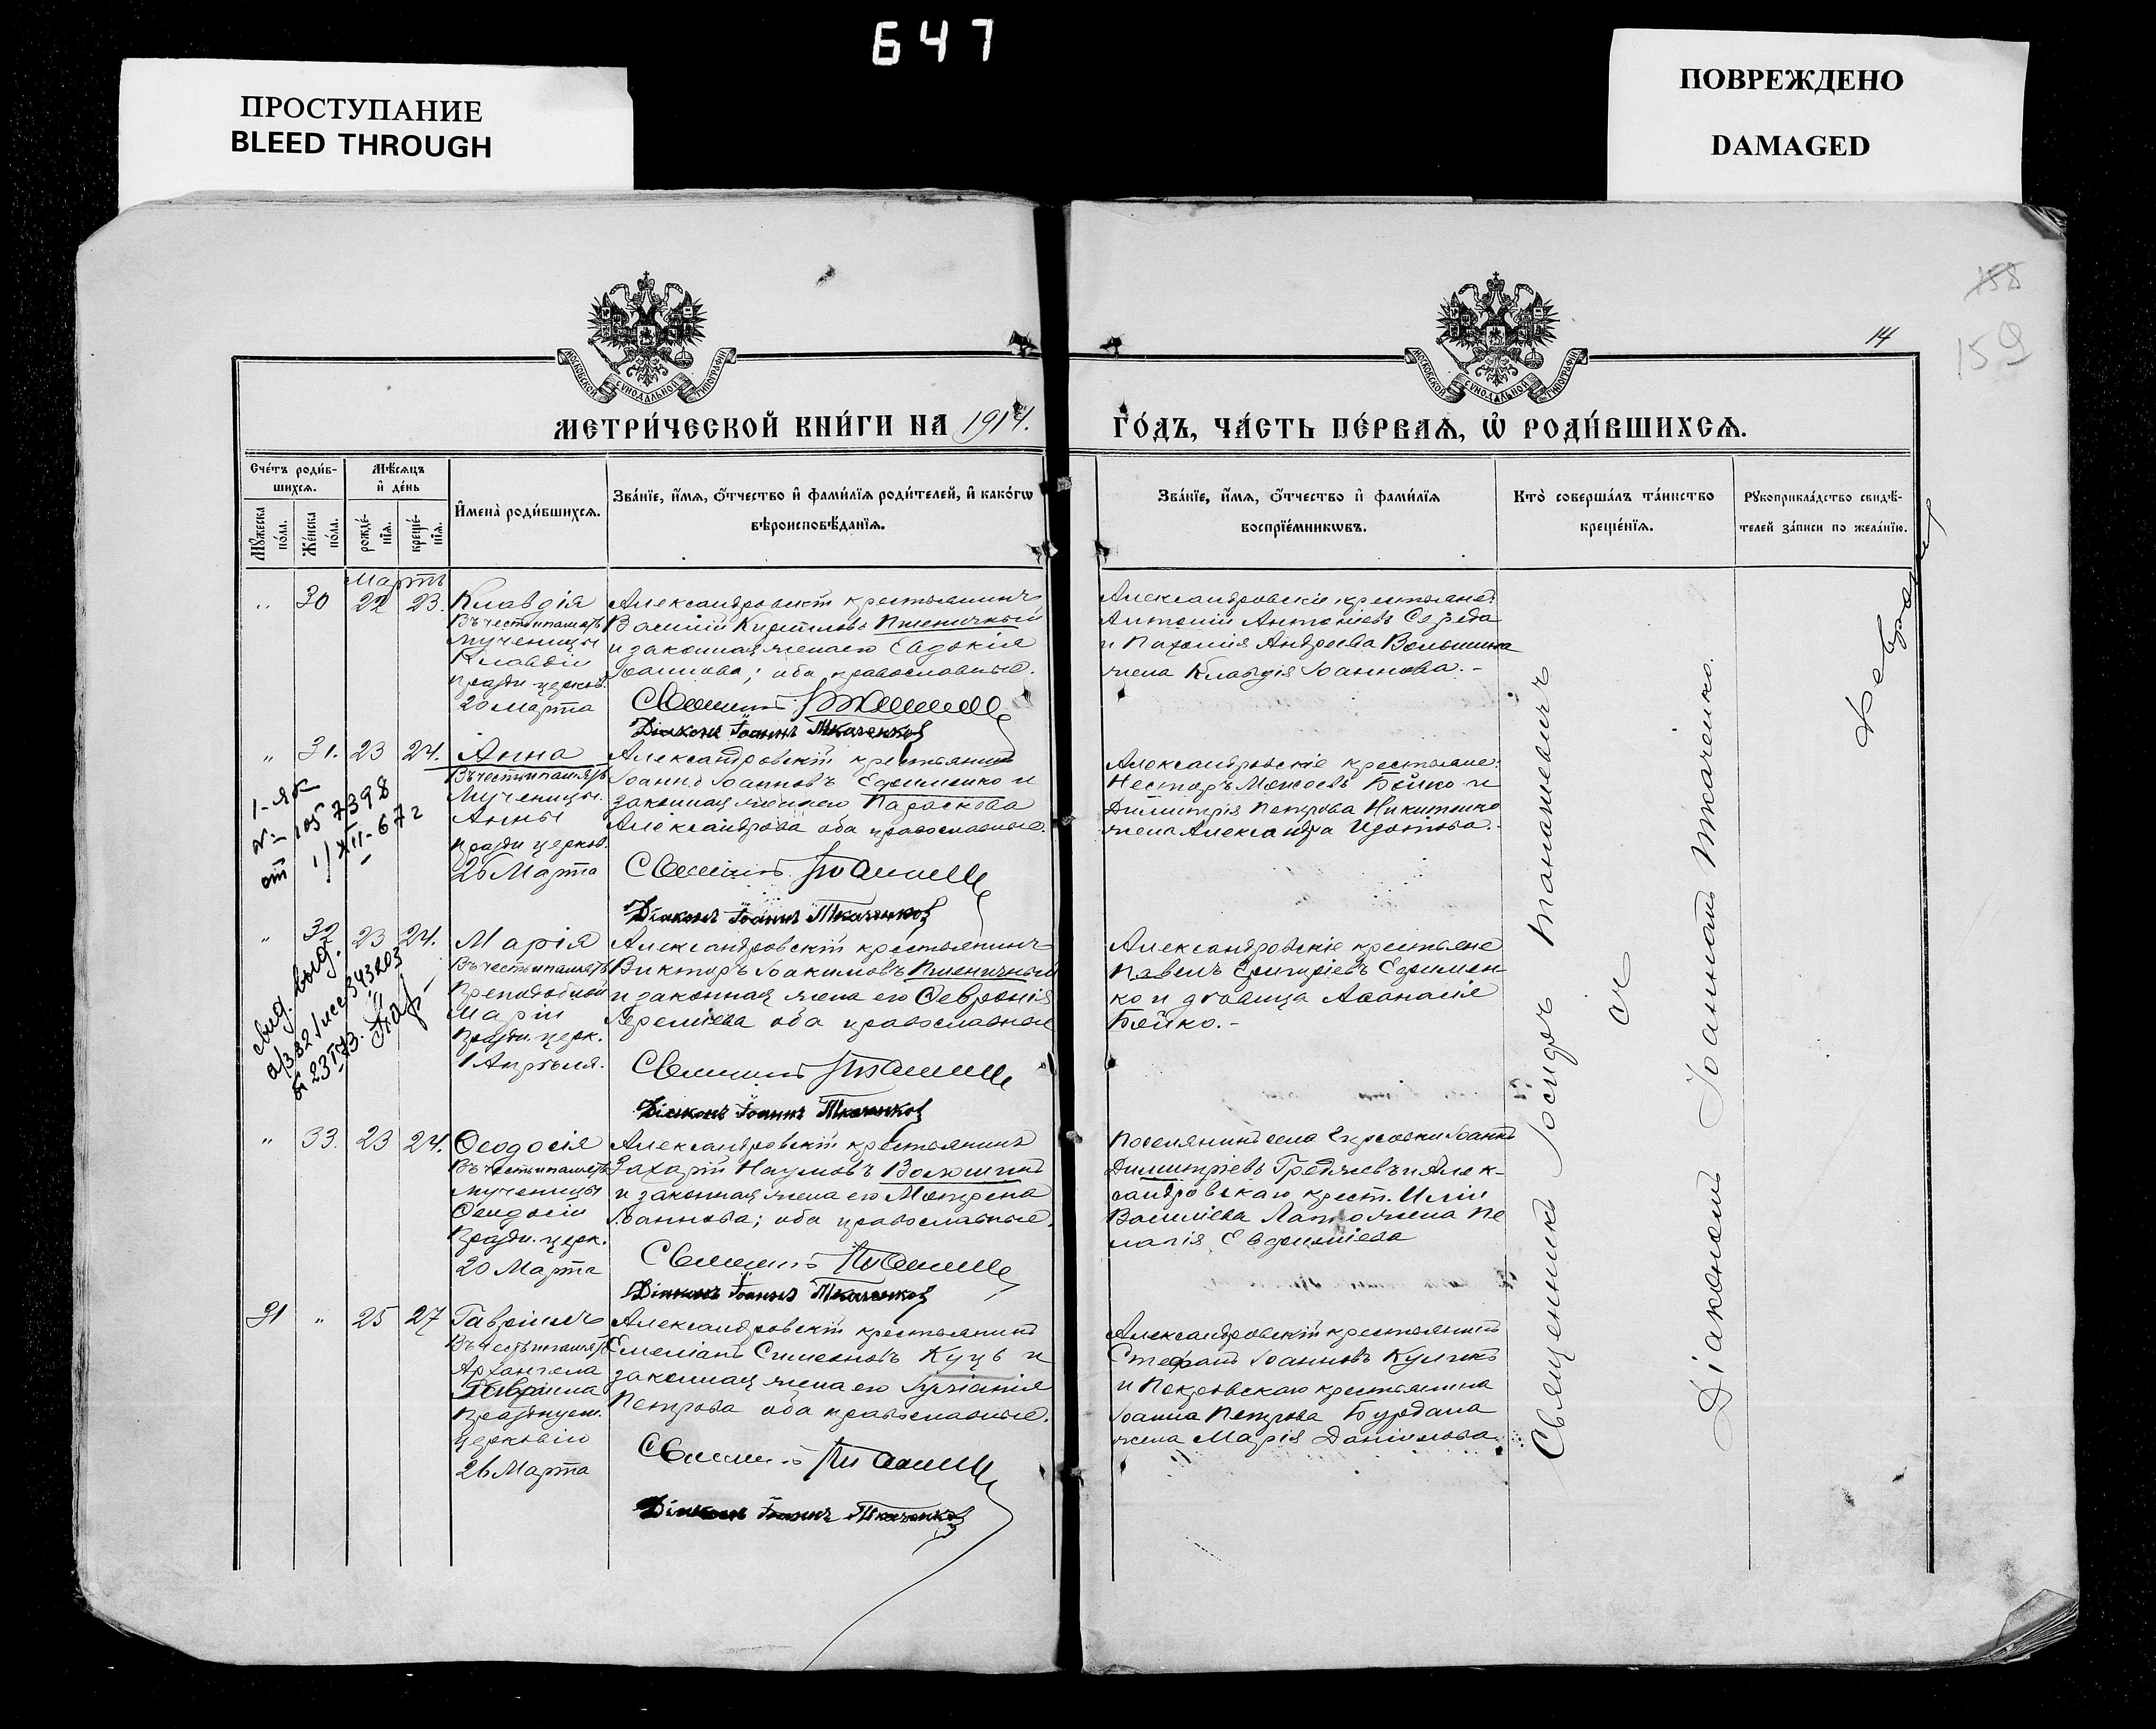 647
ПРОСТУПАНИЕ
BLEED THROUGH
ПОВРЕЖДЕНО
DAMAGED
158
159
14
МОСКОВСКОЙ СѴНОДАЛЬНОЙ ТИПОГРАФІИ
МОСКОВСКОЙ СѴНОДАЛЬНОЙ ТИПОГРАФІИ
МЕТРИ́ЧЕСКОЙ КНИ́ГИ НА 1914.
ГО́ДЪ, ЧА́СТЬ ПЕ́РВАѦ, Ѡ҆ РОДИ́ВШИХСѦ.
Сче́тъ роди́в-
шихсѧ.
Мѣ́сѧцъ
и҆ де́нь
Мꙋ́жеска
по́ла.
Же́нска
по́ла.
рожде́-
нїѧ.
креще́-
нїѧ.
И҆мена̀ роди́вшихсѧ.
Зва́нїе, и҆́мѧ, ѻ҆́тчество и҆ фами́лїѧ роди́телей, и҆ како́гѡ
вѣроисповѣ́данїѧ.
Зва́нїе, и҆́мѧ, ѻ҆́тчество и҆ фами́лїѧ
воспрїе́мникѡвъ.
Кто̀ соверша́лъ та́инство
креще́нїѧ.
Рꙋкоприкла́дство свидѣ́-
телей за́писи по жела́нїю.
Мартъ
" 30 22 23. Клавдія
Въ честь и память
мученицы
Клавдіи
празди. церков.
20 Марта
Александровскій крестьянинъ
Василій Кириловъ Пшеничный
и законная жена его Евдокія
Іоаннова; оба православные.
Діаконъ Іоаннъ Ткаченко
Александровскіе крестьяне:
Антоній Антоніевъ Середа
и Пахомія Андреева Волошина
жена Клавдія Іоаннова. -
" 31. 23 24. Анна
Въ честь и память
Мученицы
Анны
празди церков.
26 Марта
Александровскій крестьянинъ
Іоаннъ Іоанновъ Ефименко и
законная жена его Параскова
Александрова оба православные.
Діаконъ Іоаннъ Ткаченко
Александровскіе крестьяне:
Несторъ Моисеевъ Бойко и
Димитрія Петрова Никитенко
жена Александра
" 32 23 24. Марія
Въ честь и память
Преподобной
Маріи
Празди. церк.
1 Апрѣля.
Александровскій крестьянинъ
Викторъ Іоакимовъ Пшеничный
и законная жена его Февронія
Іереміева оба православные
Діаконъ Іоаннъ Ткаченко
Александровскіе крестьяне
Павелъ Григоріевъ Ефимен-
ко и дѣвица Аѳанасія
Бойко. -
" 33. 23 24. Ѳеодосія
Въ честь и память
мученицы
Ѳеодосіи
Празди. церк.
20 Марта
Александровскій крестьянинъ
Захарій Наумовъ Волошинъ
и законная жена его Матрена
Іоаннова; оба православные.
Діаконъ Іоаннъ Ткаченко
Поселянинъ села Іоаннъ
Димитріевъ и Алек-
сандровскаго крест. Иліи
Василіева жена Пе
лагія Евфиміева
31 " 25 27 Гавріилъ
Въ честь и память
Архангела
Гавріила
Празднуем.
церковію
26 Марта
Александровскій крестьянинъ
Емеліанъ Симеоновъ Куцъ и
законная жена его Іуліанія
Петрова оба православные.
Діаконъ Іоаннъ Ткаченко
Александровскій крестьянинъ
Стефанъ Іоанновъ Куликъ
и Покровскаго крестьянина
Іоанна Петрова Бурдана
жена Марія Даніилова.
Священникъ Іосифъ Танашевичъ
съ
Діакономъ Іоанномъ Ткаченко.